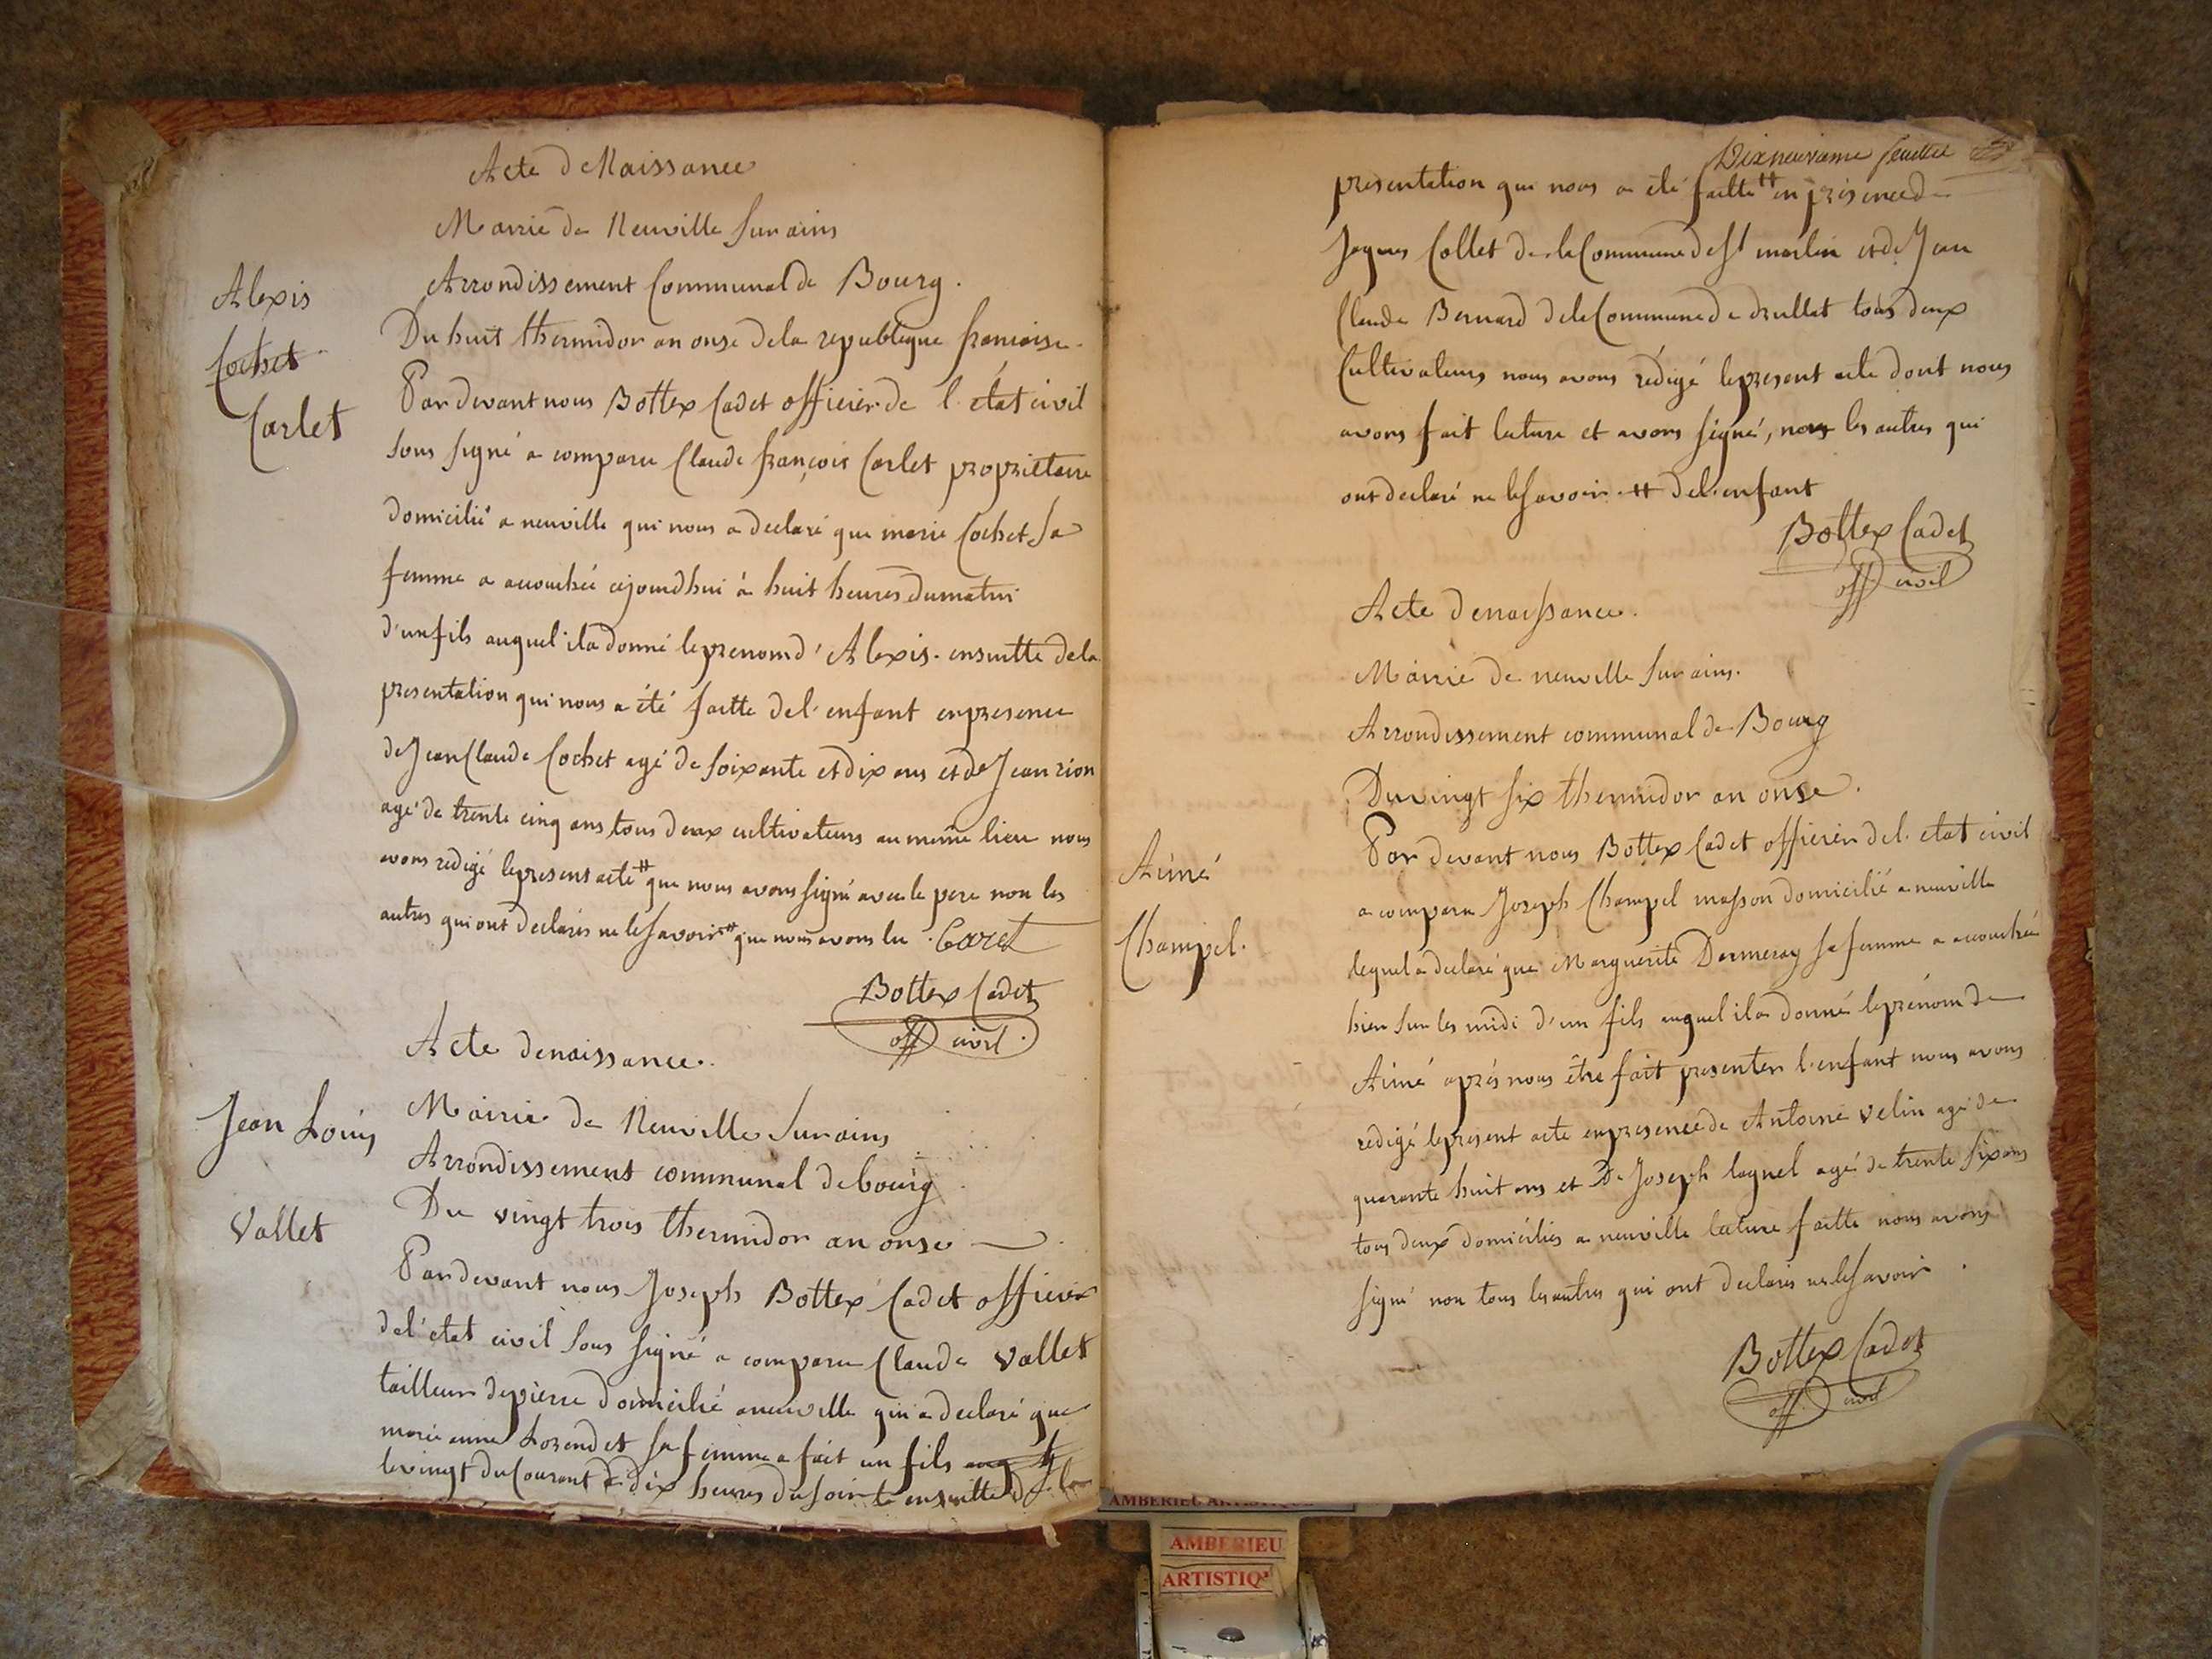 Acte de Naissance
Mairie de Neuville sur ains
Arrondissement Communal de Bourg.
Alexis
Cochet
Carlet
Du huit thermidor an onse de la republique francaise.
Par devant nous Bottex Cadet officier de l'etat civil
sous signé a comparu Claude françois Carlet proprietaire
domicilié a neuville qui nous a declaré que marie Cochet sa
femme a accouchée cejourdhui à huit heures du matin
d'un fils auquel il a donné le prenom d'Alexis. ensuitte de la
presentation qui nous a été faitte de l'enfant en presence
de Jean Claude Cochet agé de soixante et dix ans et de Jean rion
agé de trente cinq ans tous deux cultivateurs au meme lieu nous
avons redigé le present acte # que nous avons signé avec le pere non les
autres qui ont declarés ne le savoir # que nous avons lu.
Bottex Cadet
off civil.
Acte de naissance.
Jean Louis
Vallet
Mairie de Neuville sur ains
Arrondissement communal de bourg
Du vingt trois thermidor an onse
Par devant nous Joseph Bottex Cadet officier
de l'etat civil sous signé a comparu Claude Vallet
tailleur de pierre domicilié a neuville qui a declaré que
marie anne sa femme a fait un fils
le vingt du Courant a dix heures du soir ensuitte de la
Dixneuvieme feuillet
presentation qui nous a été faitte # en presence de
Jaques Collet de la Commune de St martin et de Jean
Claude Bernard de la Commune de drullat tous deux
Cultivateurs nous avons rédigé le present acte dont nous
avons fait lecture et avons signé, non les autres qui
ont declaré ne le savoir # de l'enfant
Bottex Cadet
off civil
Acte de naissance.
Mairie de neuville sur ains.
Arrondissement communal de Bourg
Du vingt six thermidor an onse.
Aimé
Champel.
Par devant nous Bottex Cadet officier de l'etat civil
a comparu Joseph Champel masson domicilié a neuville
lequel a declaré que Marguerite sa femme a accouchée
hier sur les midi d'un fils auquel il a donné le prénom de
Aimé aprés nous être fait presenter l'enfant nous avons
redigé le present acte en presence de Antoine velin agé de
quarante huit ans et De Joseph agé de trente six ans
tous deux domiciliés a neuville lecture faitte nous avons
signé non tous les autres qui ont declarés ne le savoir.
Bottex Cadet
off civil
AMBERIEU ARTISTIQUE
AMBERIEU
ARTISTIQ